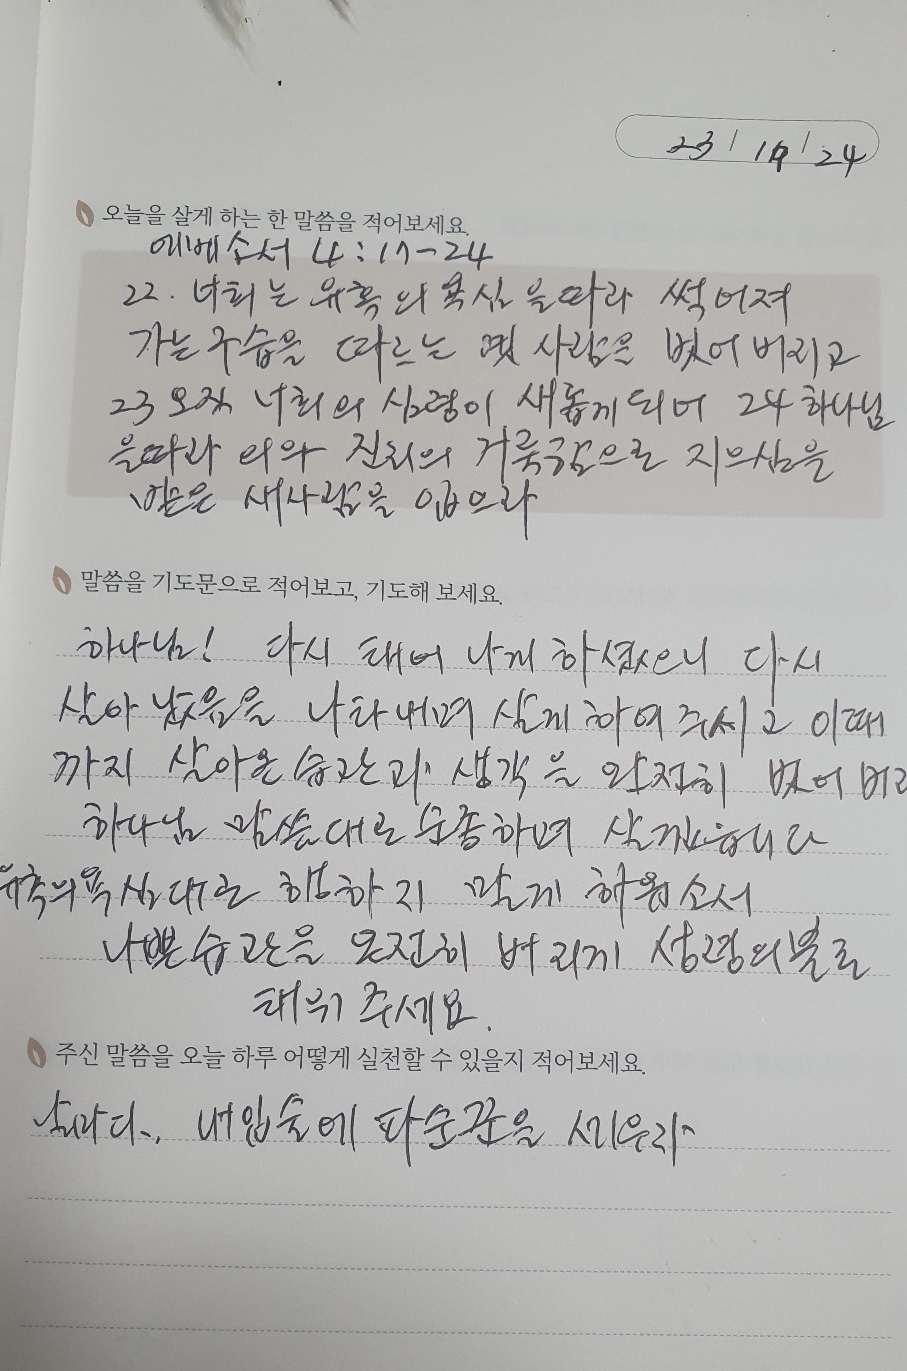 23 / 19 / 24
오늘을 살게 하는 한 말씀을 적어보세요.
에베소서 4:17-24
22. 너희는 유혹의 욕심을 따라 썩어져
가는 구습을 따르는 옛 사람을 벗어 버리고
23 오직 너희의 심령이 새롭게 되어 24 하나님
을 따라 의와 진리의 거룩함으로 지으심을
받은 새사람을 입으라
말씀을 기도문으로 적어보고, 기도해 보세요.
하나님! 다시 태어나게 하셨으니 다시
살아 났음을 나타내며 살게 하여 주시고 이때
까지 살아온 습관과 생각을 완전히 벗어 버리
하나님 말씀대로 순종하며 살겠습니다
유혹의 욕심대로 행하지 말게 하옵소서
나쁜 습관을 온전히 버리게 성령의 불로
태워 주세요.
주신 말씀을 오늘 하루 어떻게 실천할 수 있을지 적어보세요.
날마다, 내 입술에 파수꾼을 세우리